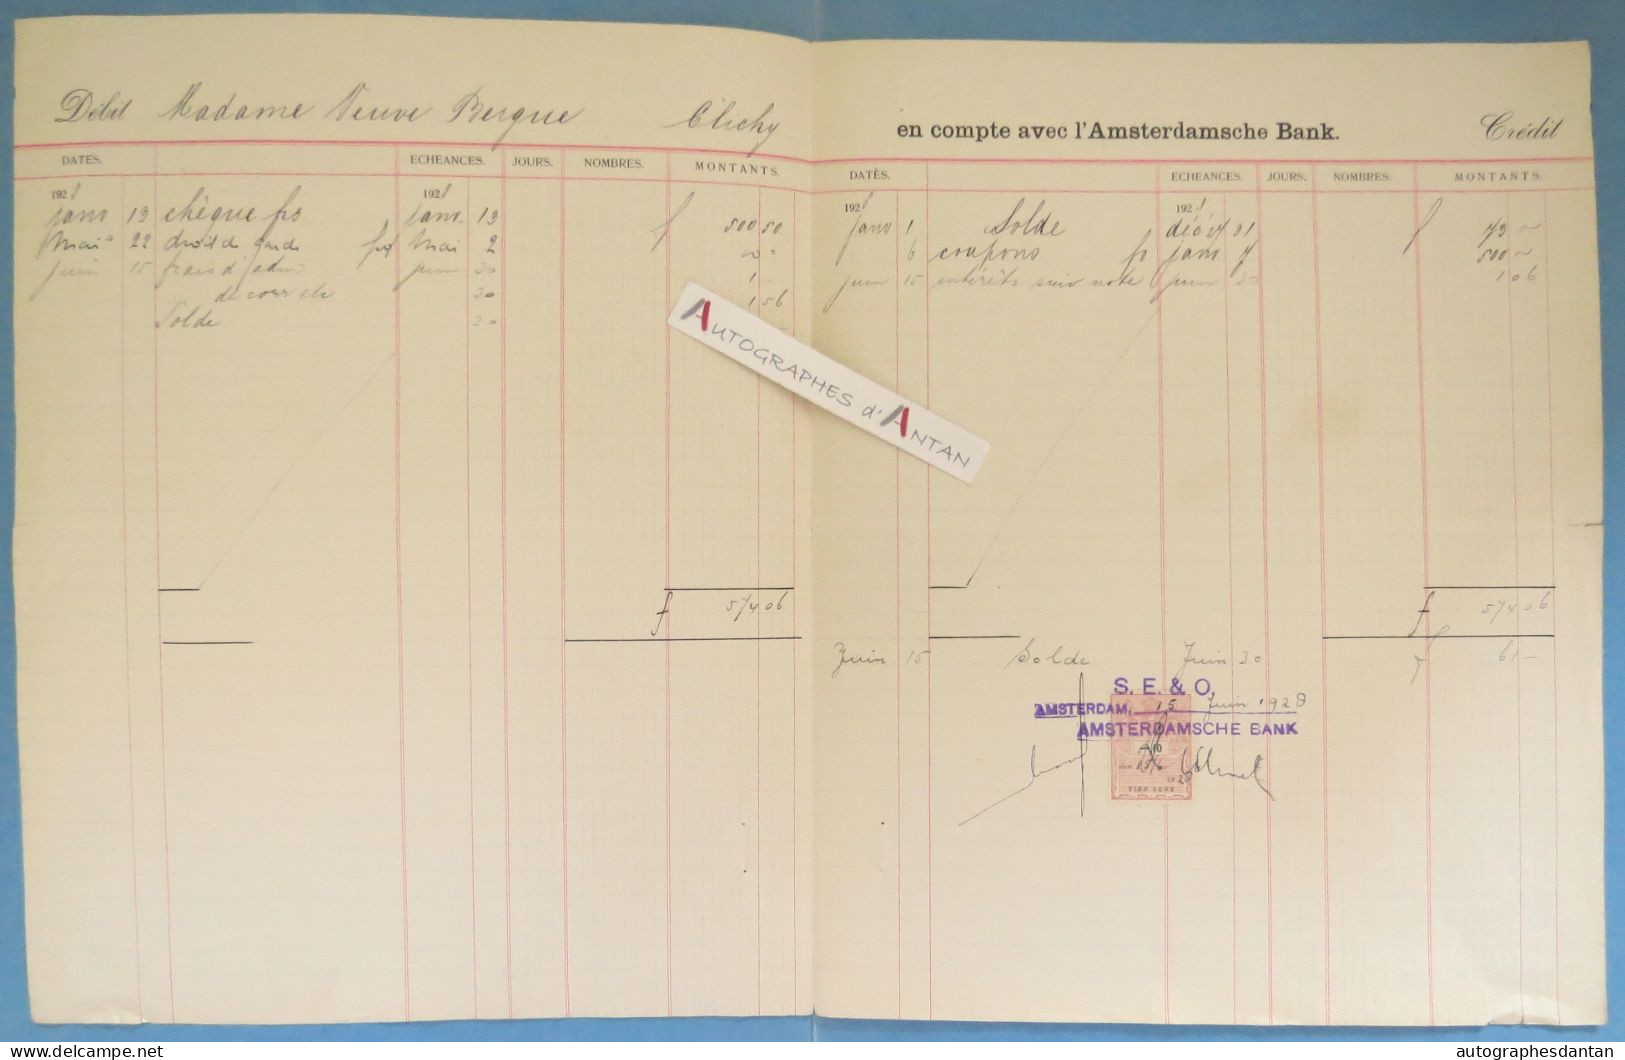 Débit Madame Veuve Bergue Clichy
en compte avec l'Amsterdamsche Bank. Crédit
DATES. ECHEANCES. JOURS. NOMBRES. MONTANTS.
1928 1928
janv 13 chèque frs janv. 13 f 500 50
Mai 22 droit de garde Mai 2 10 -
juin 15 frais d'adm juin 30 1 -
de corr etc 30 1 56
Solde 30
f 574 06
DATES. ECHEANCES. JOURS. NOMBRES. MONTANTS.
1928 1928
janv 1 Solde 31 f 73 -
6 coupons janv. 500 -
juin 15 intérêts suiv note juin 30 1 06
f 574 06
Juin 15 Solde Juin 30 f 61 -
S. E. & O.
AMSTERDAM, 15 Juin 1928
AMSTERDAMSCHE BANK
10
TIEN CENT
AUTOGRAPHES d'ANTAN
delcampe.net
autographesdantan